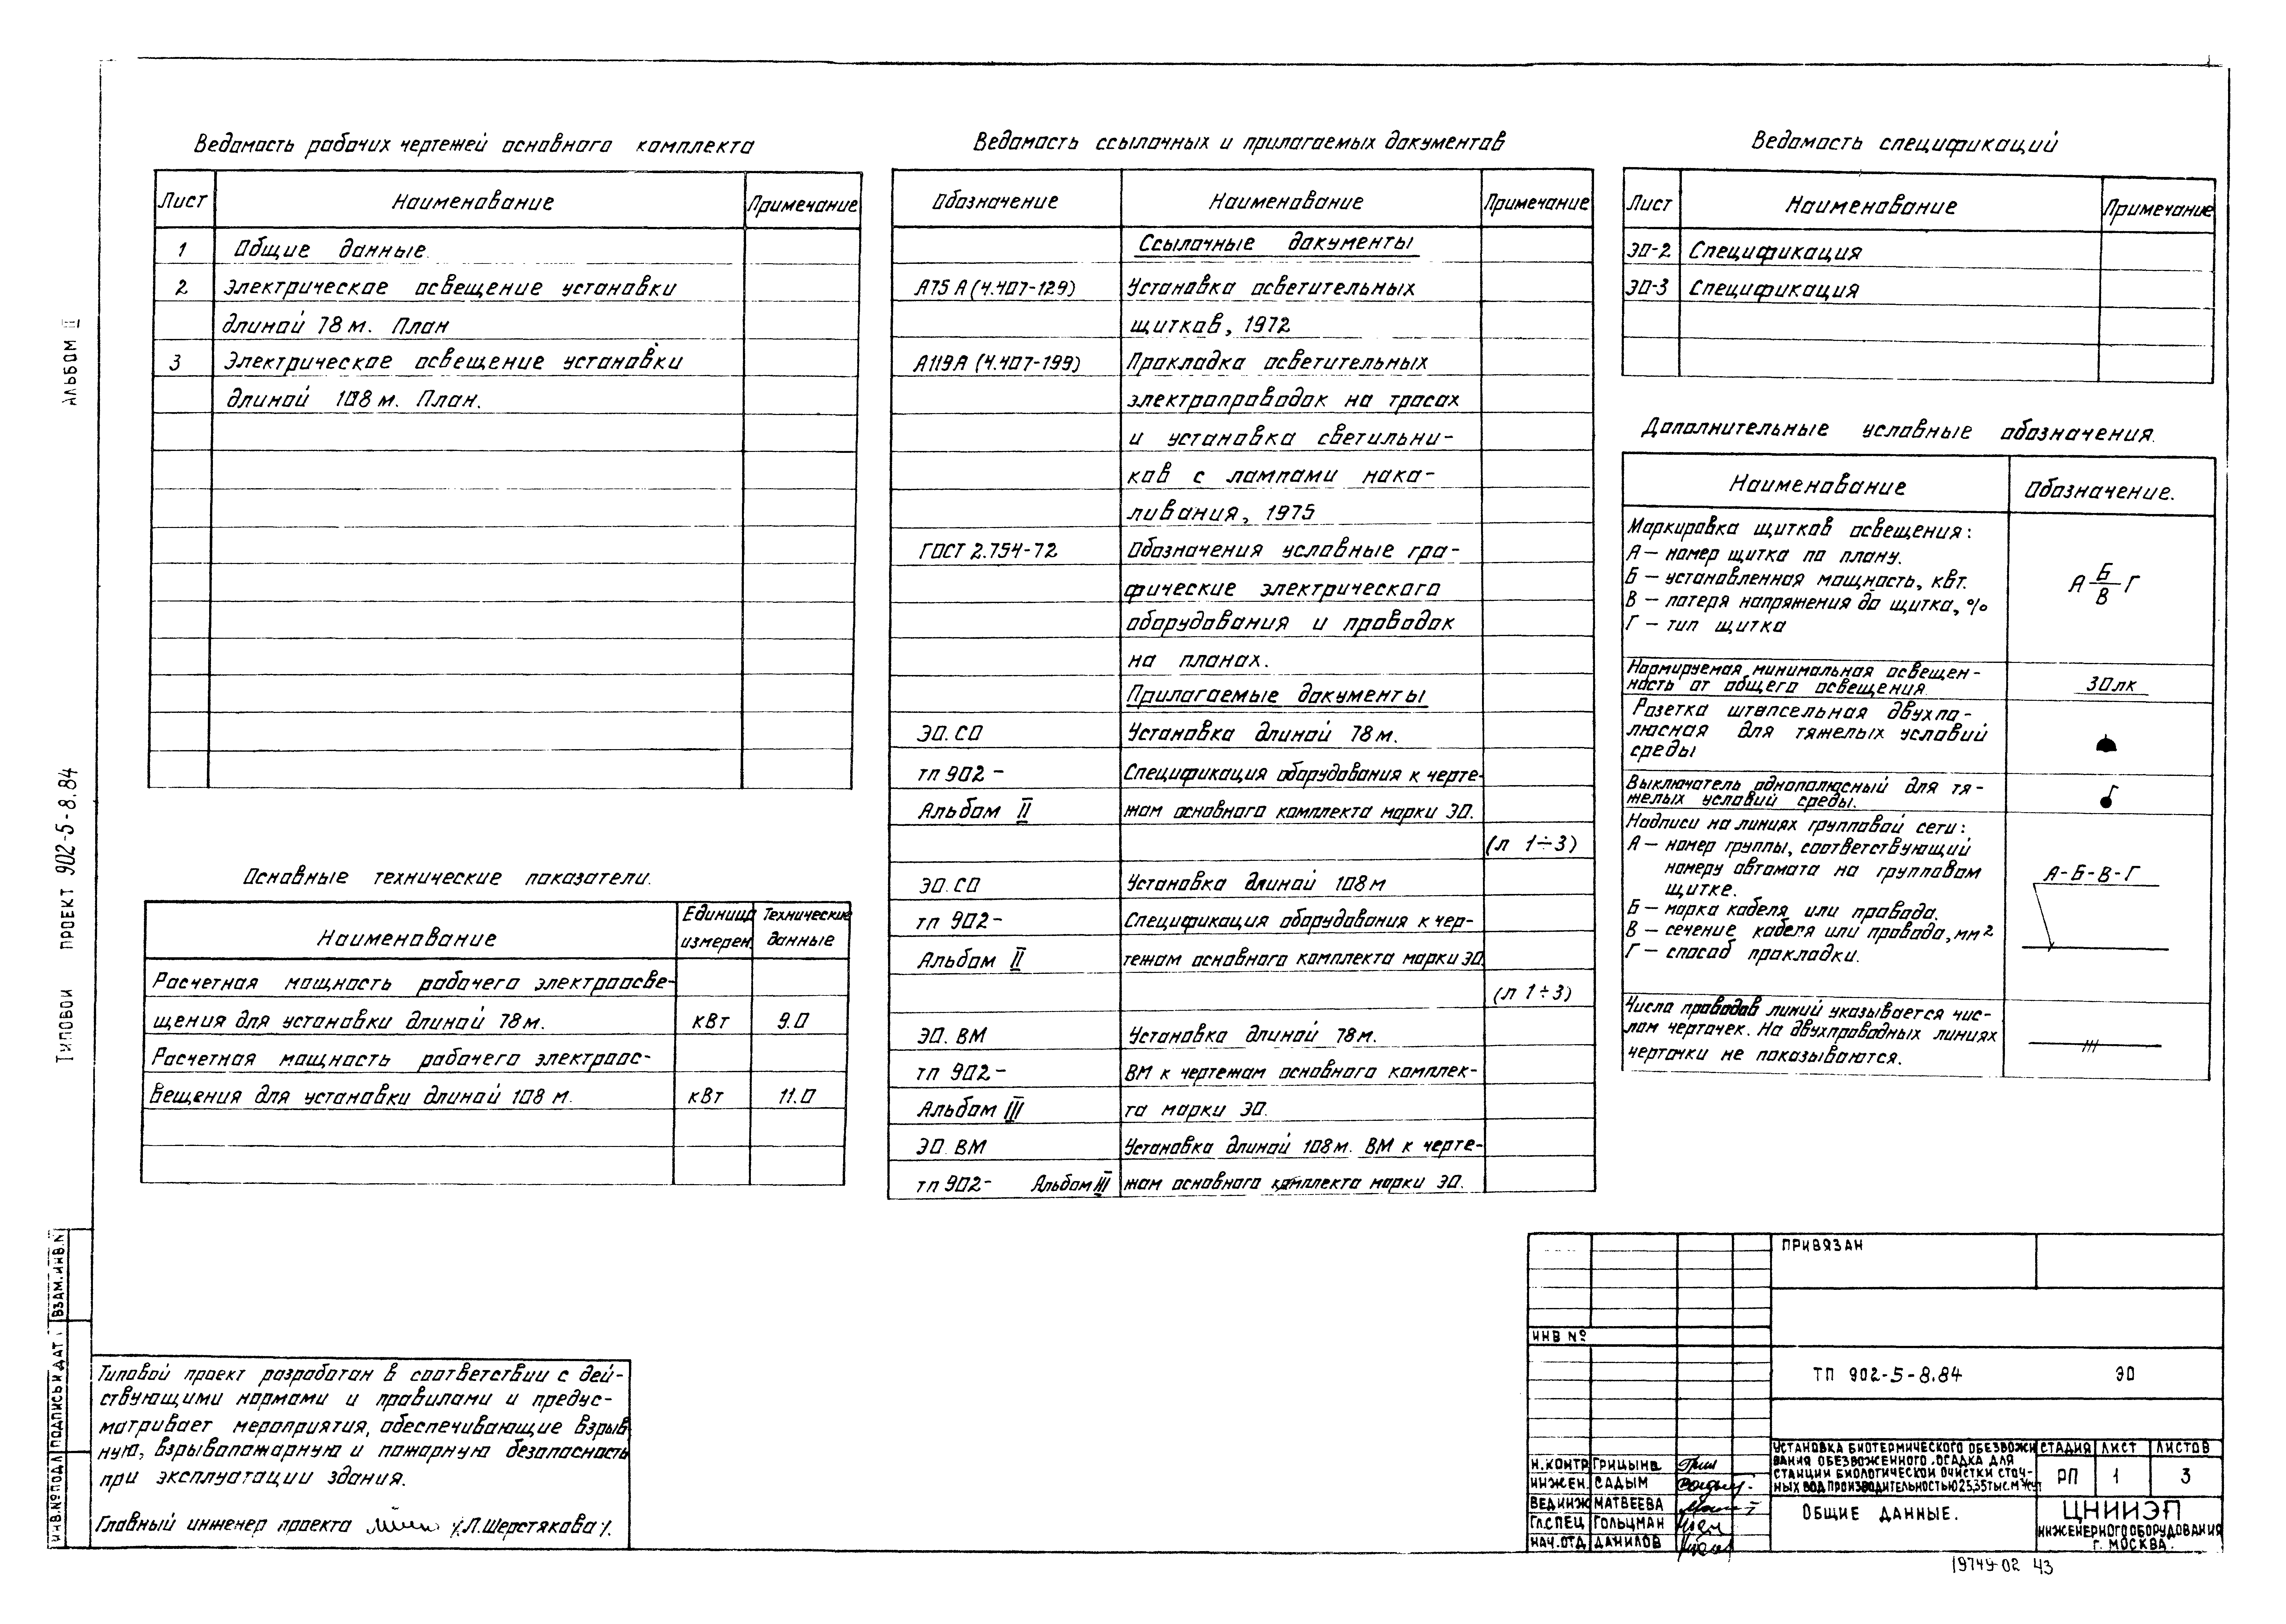 Альбом II
Типовой проект 902-5-8.84
Ведомость рабочих чертежей основного комплекта
Лист Наименование Примечание
1 Общие данные.
2 Электрическое освещение установки
длиной 78 м. План
3 Электрическое освещение установки
длиной 108 м. План.
Основные технические показатели.
Наименование Единиц измерен. Технические данные
Расчетная мощность рабочего электроосве-
щения для установки длиной 78 м. кВт 9.0
Расчетная мощность рабочего электроос-
вещения для установки длиной 108 м. кВт 11.0
Ведомость ссылочных и прилагаемых документов
Обозначение Наименование Примечание
Ссылочные документы
А75 А (4.407-129) Установка осветительных
щитков, 1972
А119 А (4.407-199) Прокладка осветительных
электропроводок на тросах
и установка светильни-
ков с лампами нака-
ливания, 1975
ГОСТ 2.754-72 Обозначения условные гра-
фические электрического
оборудования и проводок
на планах.
Прилагаемые документы
ЭО. СО Установка длиной 78 м.
тп 902- Спецификация оборудования к черте-
Альбом II жам основного комплекта марки ЭО.
(л 1÷3)
ЭО. СО Установка длиной 108 м
тп 902- Спецификация оборудования к чер-
Альбом II тежам основного комплекта марки ЭО.
(л 1÷3)
ЭО. ВМ Установка длиной 78 м.
тп 902- ВМ к чертежам основного комплек-
Альбом III та марки ЭО.
ЭО. ВМ Установка длиной 108 м. ВМ к черте-
тп 902- Альбом III жам основного комплекта марки ЭО.
Ведомость спецификаций
Лист Наименование Примечание
ЭО-2 Спецификация
ЭО-3 Спецификация
Дополнительные условные обозначения.
Наименование Обозначение.
Маркировка щитков освещения:
А — номер щитка по плану.
Б — установленная мощность, квт.
В — потеря напряжения до щитка, %
Г — тип щитка
А Б/В Г
Нормируемая минимальная освещен-
ность от общего освещения 30 лк
Розетка штепсельная двухпо-
люсная для тяжелых условий
среды
Выключатель однополюсный для тя-
желых условий среды.
Надписи на линиях групповой сети:
А — номер группы, соответствующий
номеру автомата на групповом
щитке.
Б — марка кабеля или провода.
В — сечение кабеля или провода, мм²
Г — способ прокладки.
А-Б-В-Г
Число проводов линий указывается чис-
лом черточек. На двухпроводных линиях
черточки не показываются.
Инв.№подл Подпись и дат. Взам.инв.№
Типовой проект разработан в соответствии с дей-
ствующими нормами и правилами и предус-
матривает мероприятия, обеспечивающие взрыв
ную, взрывопожарную и пожарную безопасность
при эксплуатации здания.
Главный инженер проекта /Л.Шерстякова/.
Привязан
Инв №
ТП 902-5-8.84 ЭО
Н.контр Грицына
Инжен. Садым
Вед.инж Матвеева
Гл.спец Гольцман
Нач.отд Данилов
Установка биотермического обезвожи
вания обезвоженного осадка для
станции биологической очистки сточ-
ных вод производительностью 25,35 тыс.м³/сут
Общие данные.
Стадия Лист Листов
РП 1 3
ЦНИИЭП
инженерного оборудования
г. Москва.
19749-02 43